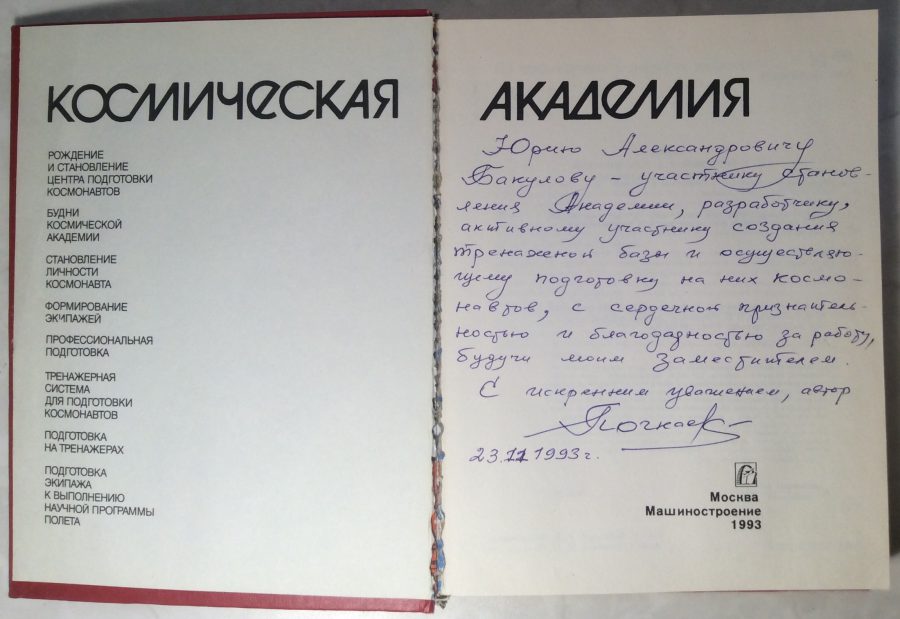 КОСМИЧЕСКАЯ
РОЖДЕНИЕ
И СТАНОВЛЕНИЕ
ЦЕНТРА ПОДГОТОВКИ
КОСМОНАВТОВ
БУДНИ
КОСМИЧЕСКОЙ
АКАДЕМИИ
СТАНОВЛЕНИЕ
ЛИЧНОСТИ
КОСМОНАВТА
ФОРМИРОВАНИЕ
ЭКИПАЖЕЙ
ПРОФЕССИОНАЛЬНАЯ
ПОДГОТОВКА
ТРЕНАЖЕРНАЯ
СИСТЕМА
ДЛЯ ПОДГОТОВКИ
КОСМОНАВТОВ
ПОДГОТОВКА
НА ТРЕНАЖЕРАХ
ПОДГОТОВКА
ЭКИПАЖА
К ВЫПОЛНЕНИЮ
НАУЧНОЙ ПРОГРАММЫ
ПОЛЕТА
АКАДЕМИЯ
Юрию Александровичу
Бакулову – участнику станов-
ления Академии, разработчику,
активному участнику создания
тренажной базы и осуществляю-
щему подготовку на них космо-
навтов, с сердечной признатель-
ностью и благодарностью за работу,
будучи моим заместителем.
С искренним уважением, автор
23.11.1993 г.
Москва
Машиностроение
1993